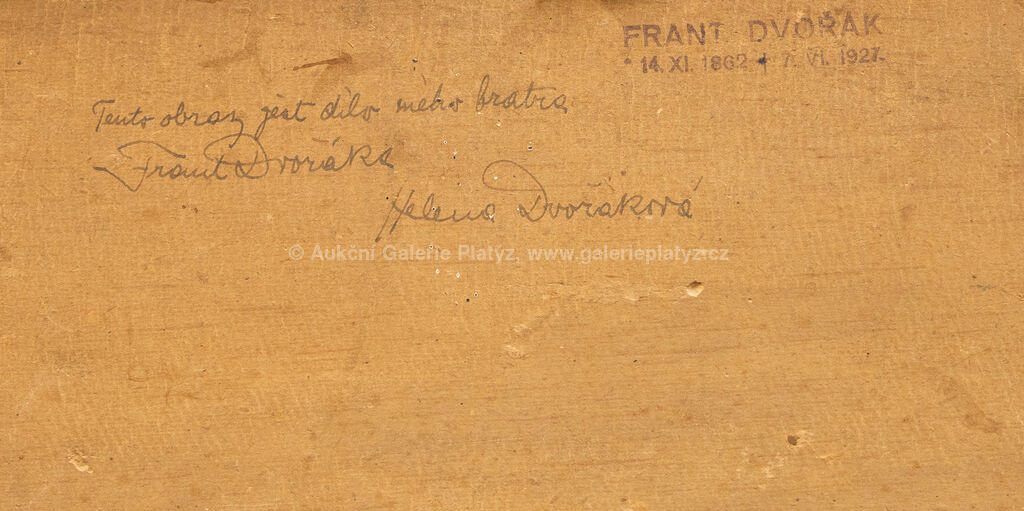 FRANT. DVOŘÁK
* 14. XI. 1862 † 7. VI. 1927.
Tento obraz jest dílo mého bratra
Frant Dvořáka
Helena Dvořáková
© Aukční Galerie Platýz, www.galerieplatyz.cz